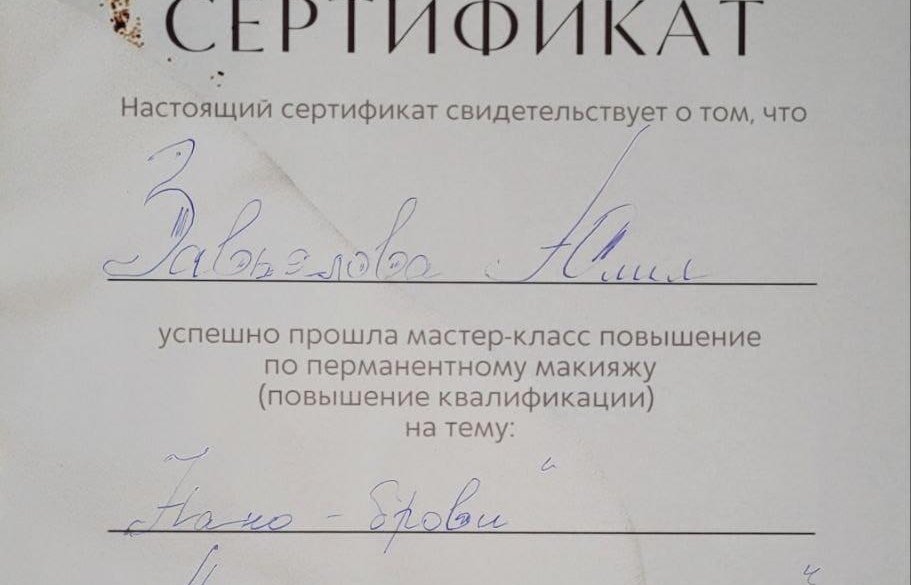 СЕРТИФИКАТ
Настоящий сертификат свидетельствует о том, что
Завьялова Юлия
успешно прошла мастер-класс повышение
по перманентному макияжу
(повышение квалификации)
на тему:
Нано - брови"